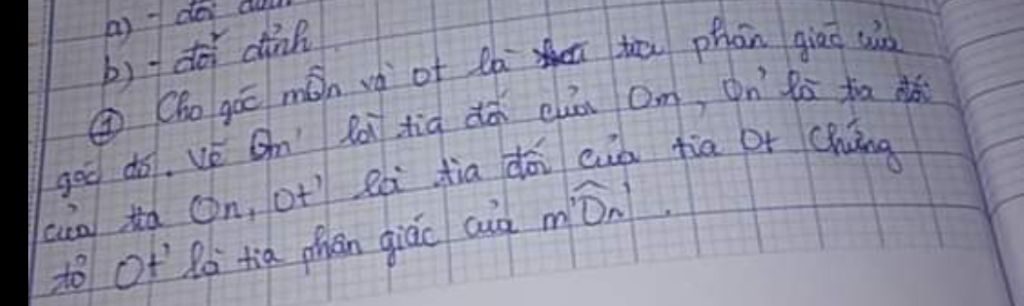 a) - đối đỉnh
b) - đối đỉnh
④ Cho góc mÔn và Ot là tia phân giác của
góc đó. Vẽ Om' là tia đối của Om, On' là tia đối
của tia On, Ot' là tia đối của tia Ot Chứng
tỏ Ot' là tia phân giác của m'Ôn'.